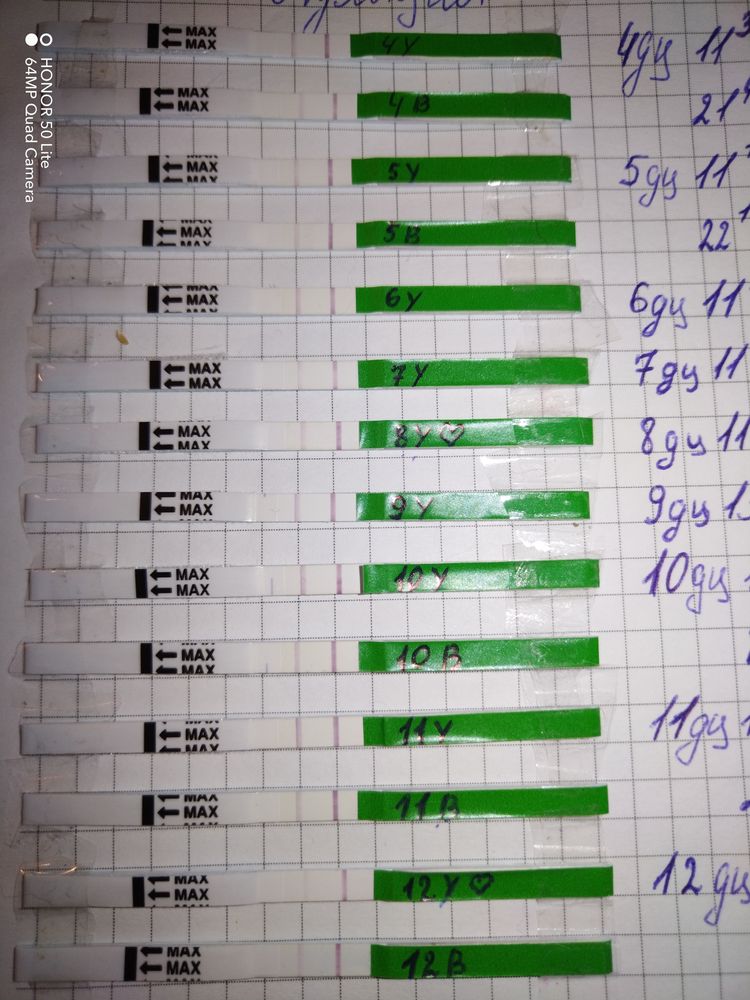 HONOR 50 Lite
64MP Quad Camera
MAX
MAX
4У
4дц 11³
MAX
MAX
4В
21⁴
MAX
MAX
MAX
5У
5дц 11
MAX
MAX
MAX
5В
22¹
MAX
MAX
MAX
6У
6дц 11
MAX
MAX
7У
7дц 11
MAX
MAX
8У♡
8дц 11
MAX
MAX
MAX
9У
9дц 1
MAX
MAX
10У
10дц
MAX
MAX
MAX
10В
MAX
MAX
MAX
11У
11дц
MAX
MAX
MAX
11В
MAX
MAX
12У♡
12дц
MAX
MAX
MAX
12В